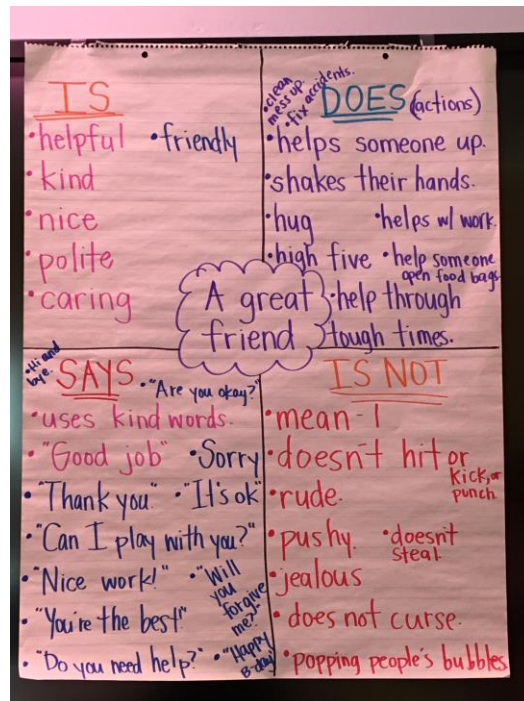 IS
•helpful •friendly
•kind
•nice
•polite
•caring
•clean
mess up.
•fix accidents.
DOES (actions)
•helps someone up.
•shakes their hands.
•hug •helps w/ work.
•high five •help someone
open food bags
•help through
tough times.
A great
friend
•Hi and
bye.
SAYS •"Are you okay?"
•uses kind words.
•"Good job" •Sorry
•"Thank you" •"It's ok"
•"Can I play with you?"
•"Nice work!" •"Will
you
forgive
me?"
•"You're the best!"
•"Do you need help?" •"Happy
B-day"
IS NOT
•mean - 1
•doesn't hit or
kick, or
punch
•rude.
•pushy. •doesn't
steal.
•jealous
•does not curse.
•popping people's bubbles